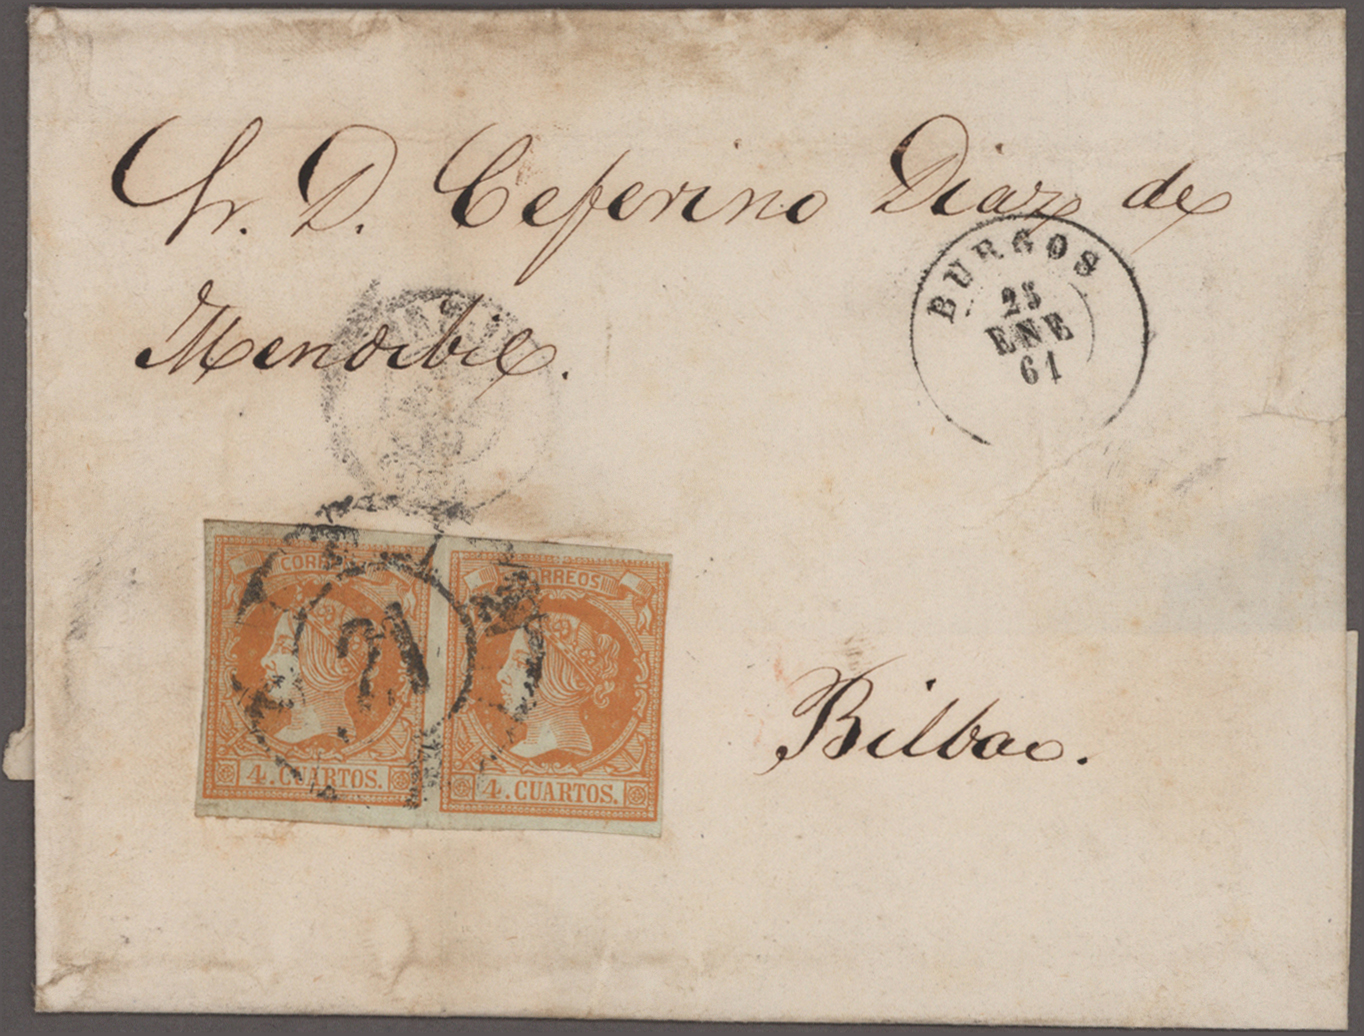 Sr. D. Ceferino Diaz de
Mendibil.
BURGOS
25
ENE
61
CORREOS
CORREOS
4. CUARTOS.
4. CUARTOS.
Bilbao.